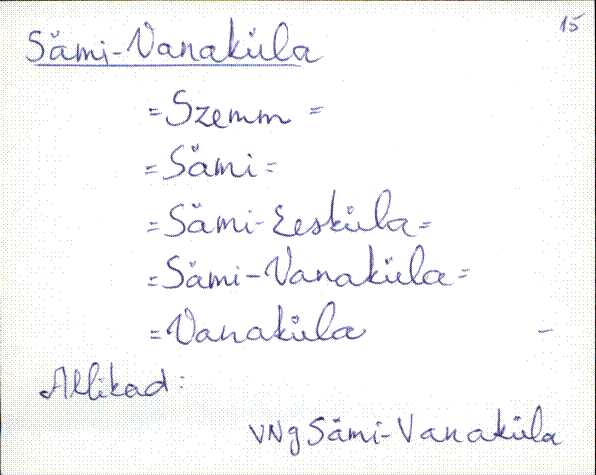 15
Sämi-Vanaküla
= Szemm =
= Sämi =
= Sämi-Eesküla =
= Sämi-Vanaküla =
= Vanaküla -
Allikad:
VNg Sämi-Vanaküla